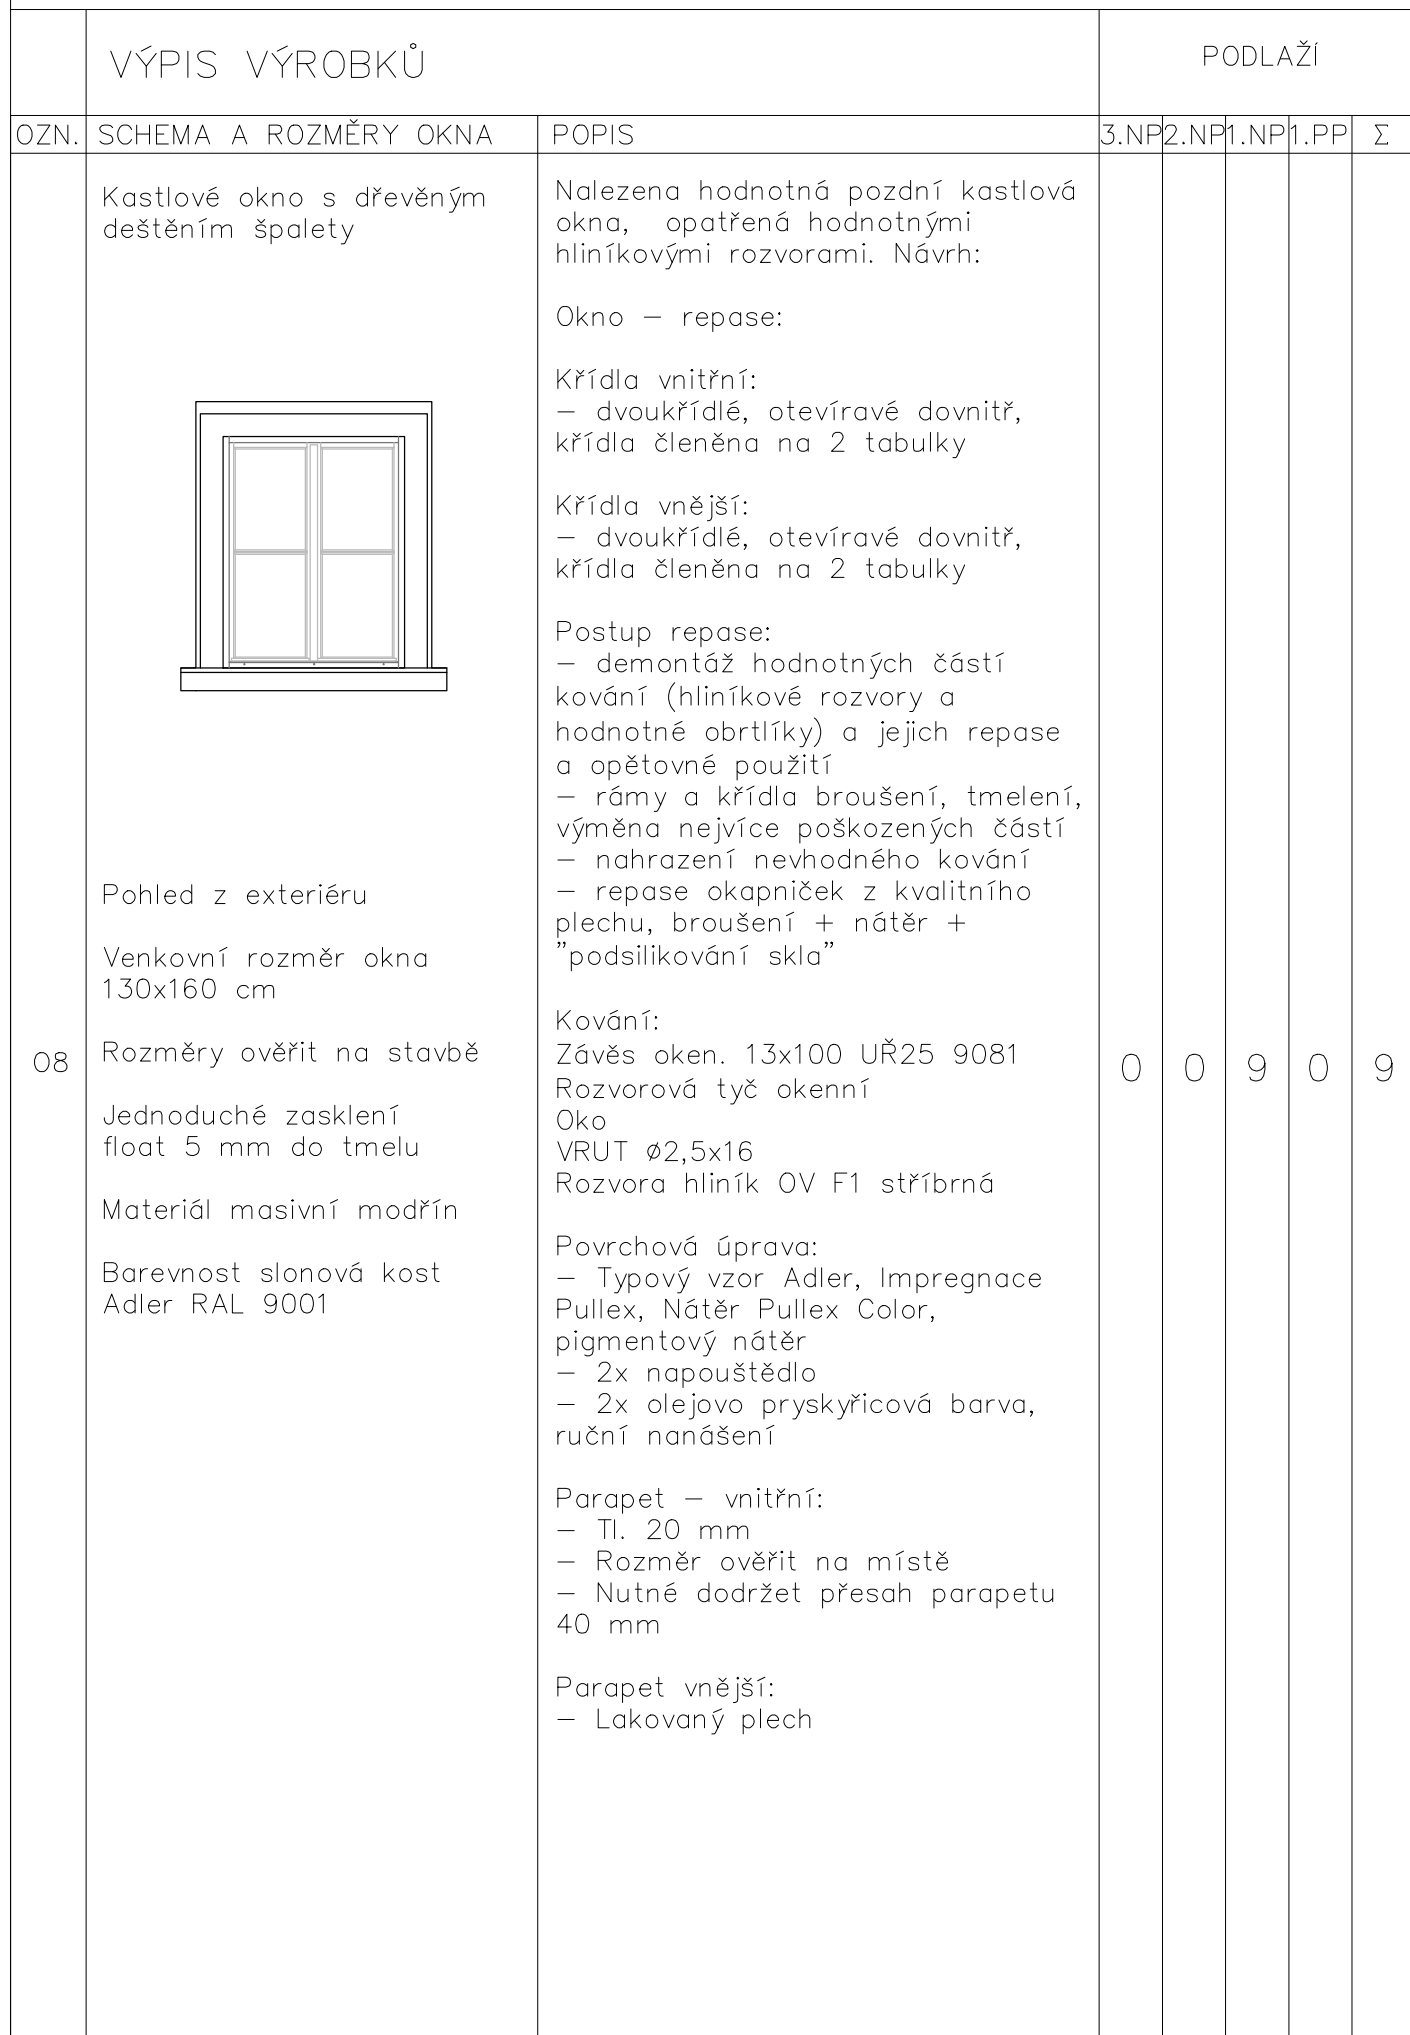 VÝPIS VÝROBKŮ
PODLAŽÍ
OZN. SCHEMA A ROZMĚRY OKNA POPIS 3.NP 2.NP 1.NP 1.PP Σ
Kastlové okno s dřevěným
deštěním špalety
Pohled z exteriéru
Venkovní rozměr okna
130x160 cm
O8
Rozměry ověřit na stavbě
Jednoduché zasklení
float 5 mm do tmelu
Materiál masivní modřín
Barevnost slonová kost
Adler RAL 9001
Nalezena hodnotná pozdní kastlová
okna, opatřená hodnotnými
hliníkovými rozvorami. Návrh:
Okno – repase:
Křídla vnitřní:
– dvoukřídlé, otevíravé dovnitř,
křídla členěna na 2 tabulky
Křídla vnější:
– dvoukřídlé, otevíravé dovnitř,
křídla členěna na 2 tabulky
Postup repase:
– demontáž hodnotných částí
kování (hliníkové rozvory a
hodnotné obrtlíky) a jejich repase
a opětovné použití
– rámy a křídla broušení, tmelení,
výměna nejvíce poškozených částí
– nahrazení nevhodného kování
– repase okapniček z kvalitního
plechu, broušení + nátěr +
"podsilikování skla"
Kování:
Závěs oken. 13x100 UŘ25 9081
Rozvorová tyč okenní
Oko
VRUT ø2,5x16
Rozvora hliník OV F1 stříbrná
Povrchová úprava:
– Typový vzor Adler, Impregnace
Pullex, Nátěr Pullex Color,
pigmentový nátěr
– 2x napouštědlo
– 2x olejovo pryskyřicová barva,
ruční nanášení
Parapet – vnitřní:
– Tl. 20 mm
– Rozměr ověřit na místě
– Nutné dodržet přesah parapetu
40 mm
Parapet vnější:
– Lakovaný plech
0 0 9 0 9